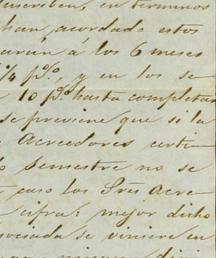 suscriben, en terminos
han, acordado estos
arán a los 6 meses
¼ p%, y en los se
10 p% hasta completar
se previene que si la
Acreedores certi
o Semestre no se
caso los Sres Acre
cifra: mejor dicho
sociada se viniere en